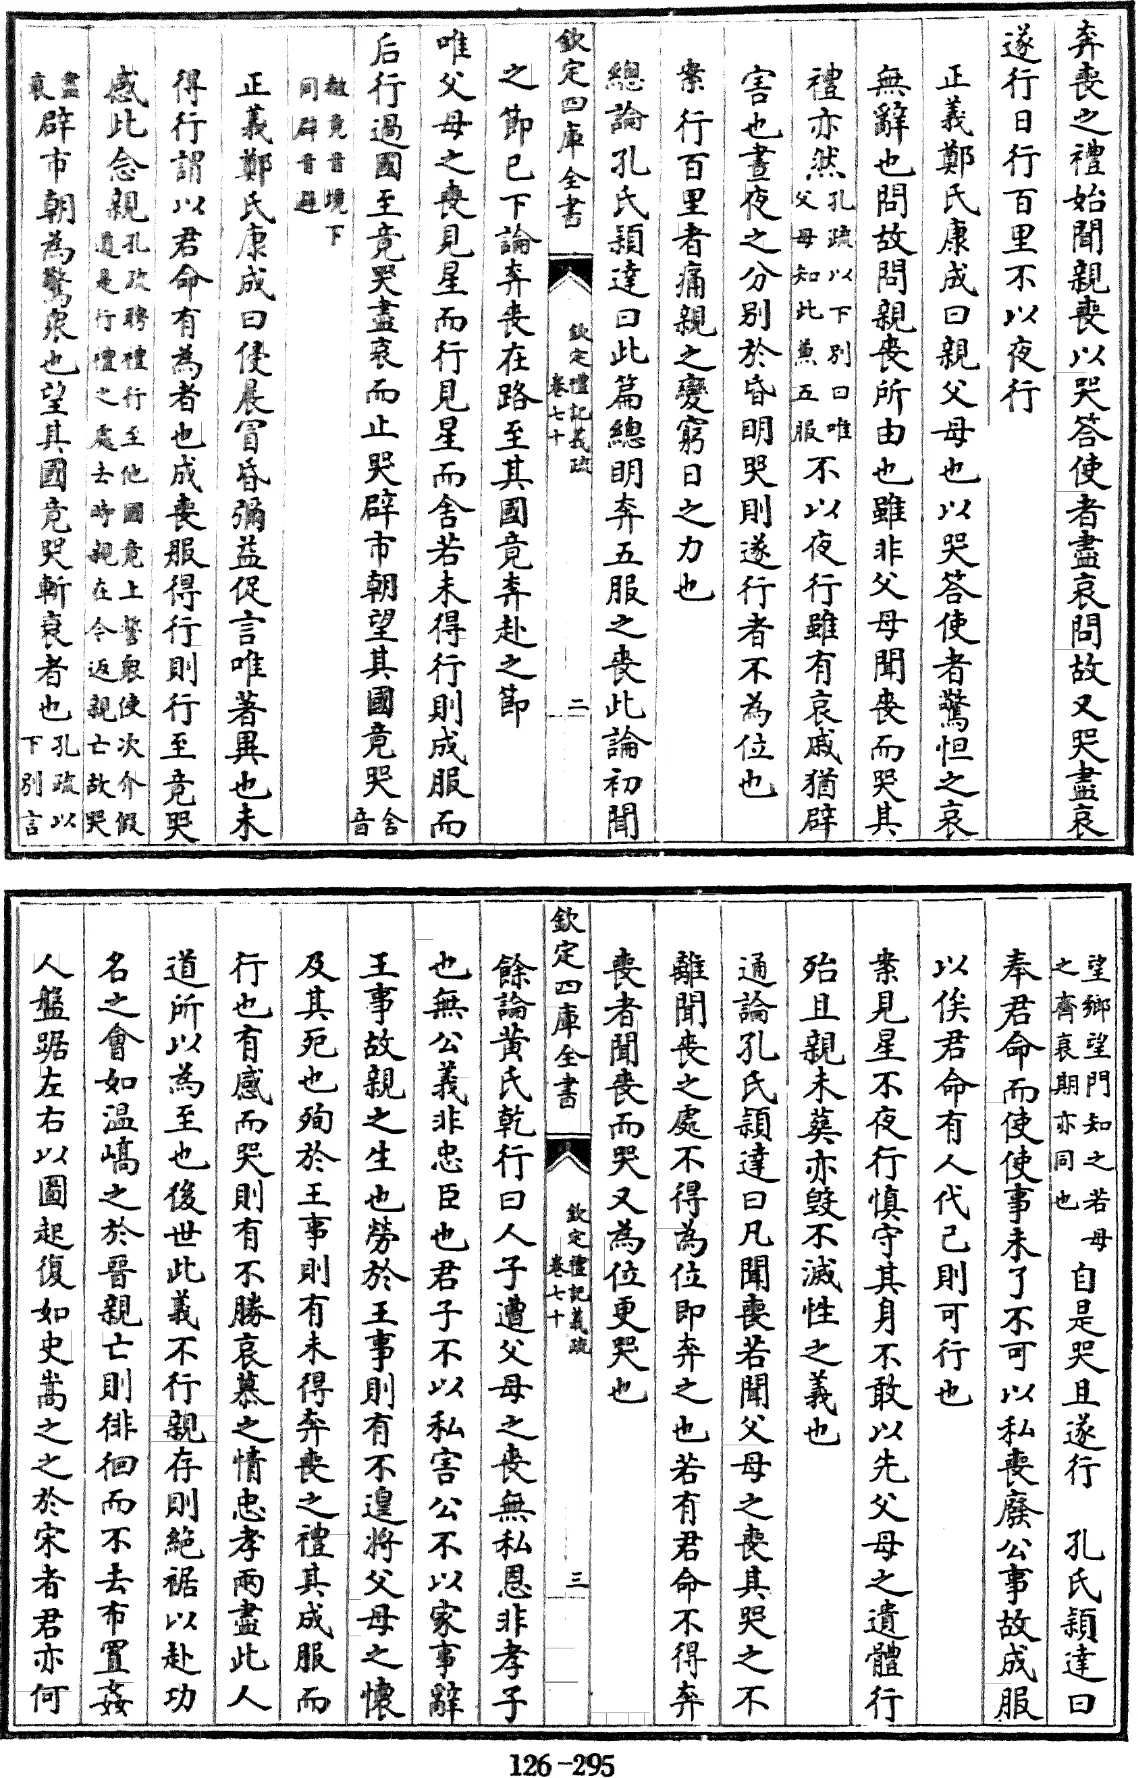 奔喪之禮始聞親喪以哭答使者盡哀問故又哭盡哀
遂行日行百里不以夜行
正義鄭氏康成曰親父母也以哭答使者驚怛之哀
無辭也問故問親喪所由也雖非父母聞喪而哭其
禮亦然孔疏以下別曰唯父母知此兼五服不以夜行雖有哀戚猶辟
害也晝夜之分別於昏明哭則遂行者不為位也
案行百里者痛親之變窮日之力也
總論孔氏穎達曰此篇總明奔五服之喪此論初聞
欽定四庫全書
欽定禮記義疏
卷七十
二
之節已下論奔喪在路至其國竟奔赴之節
唯父母之喪見星而行見星而舍若未得行則成服而
后行過國至竟哭盡哀而止哭辟市朝望其國竟哭舍音
赦竟音境下同辟音避
正義鄭氏康成曰侵晨冒昏彌益促言唯著異也未
得行謂以君命有為者也成喪服得行則行至竟哭
感此念親孔疏聘禮行至他國竟上誓眾使次介假道是行禮之處去時親在今返親亡故哭
盡哀辟市朝為驚眾也望其國竟哭斬衰者也孔疏以下別言
望鄉望門知之若母之齊衰期亦同也自是哭且遂行 孔氏穎達曰
奉君命而使使事未了不可以私喪廢公事故成服
以俟君命有人代己則可行也
案見星不夜行慎守其身不敢以先父母之遺體行
殆且親未葬亦毀不滅性之義也
通論孔氏穎達曰凡聞喪若聞父母之喪其哭之不
離聞喪之處不得為位即奔之也若有君命不得奔
喪者聞喪而哭又為位更哭也
欽定四庫全書
欽定禮記義疏
卷七十
三
餘論黃氏乾行曰人子遭父母之喪無私恩非孝子
也無公義非忠臣也君子不以私害公不以家事辭
王事故親之生也勞於王事則有不遑將父母之懷
及其死也殉於王事則有未得奔喪之禮其成服而
行也有感而哭則有不勝哀慕之情忠孝兩盡此人
道所以為至也後世此義不行親存則絕裾以赴功
名之會如温嶠之於晉親亡則徘徊而不去布置姦
人盤踞左右以圖起復如史嵩之之於宋者君亦何
126-295